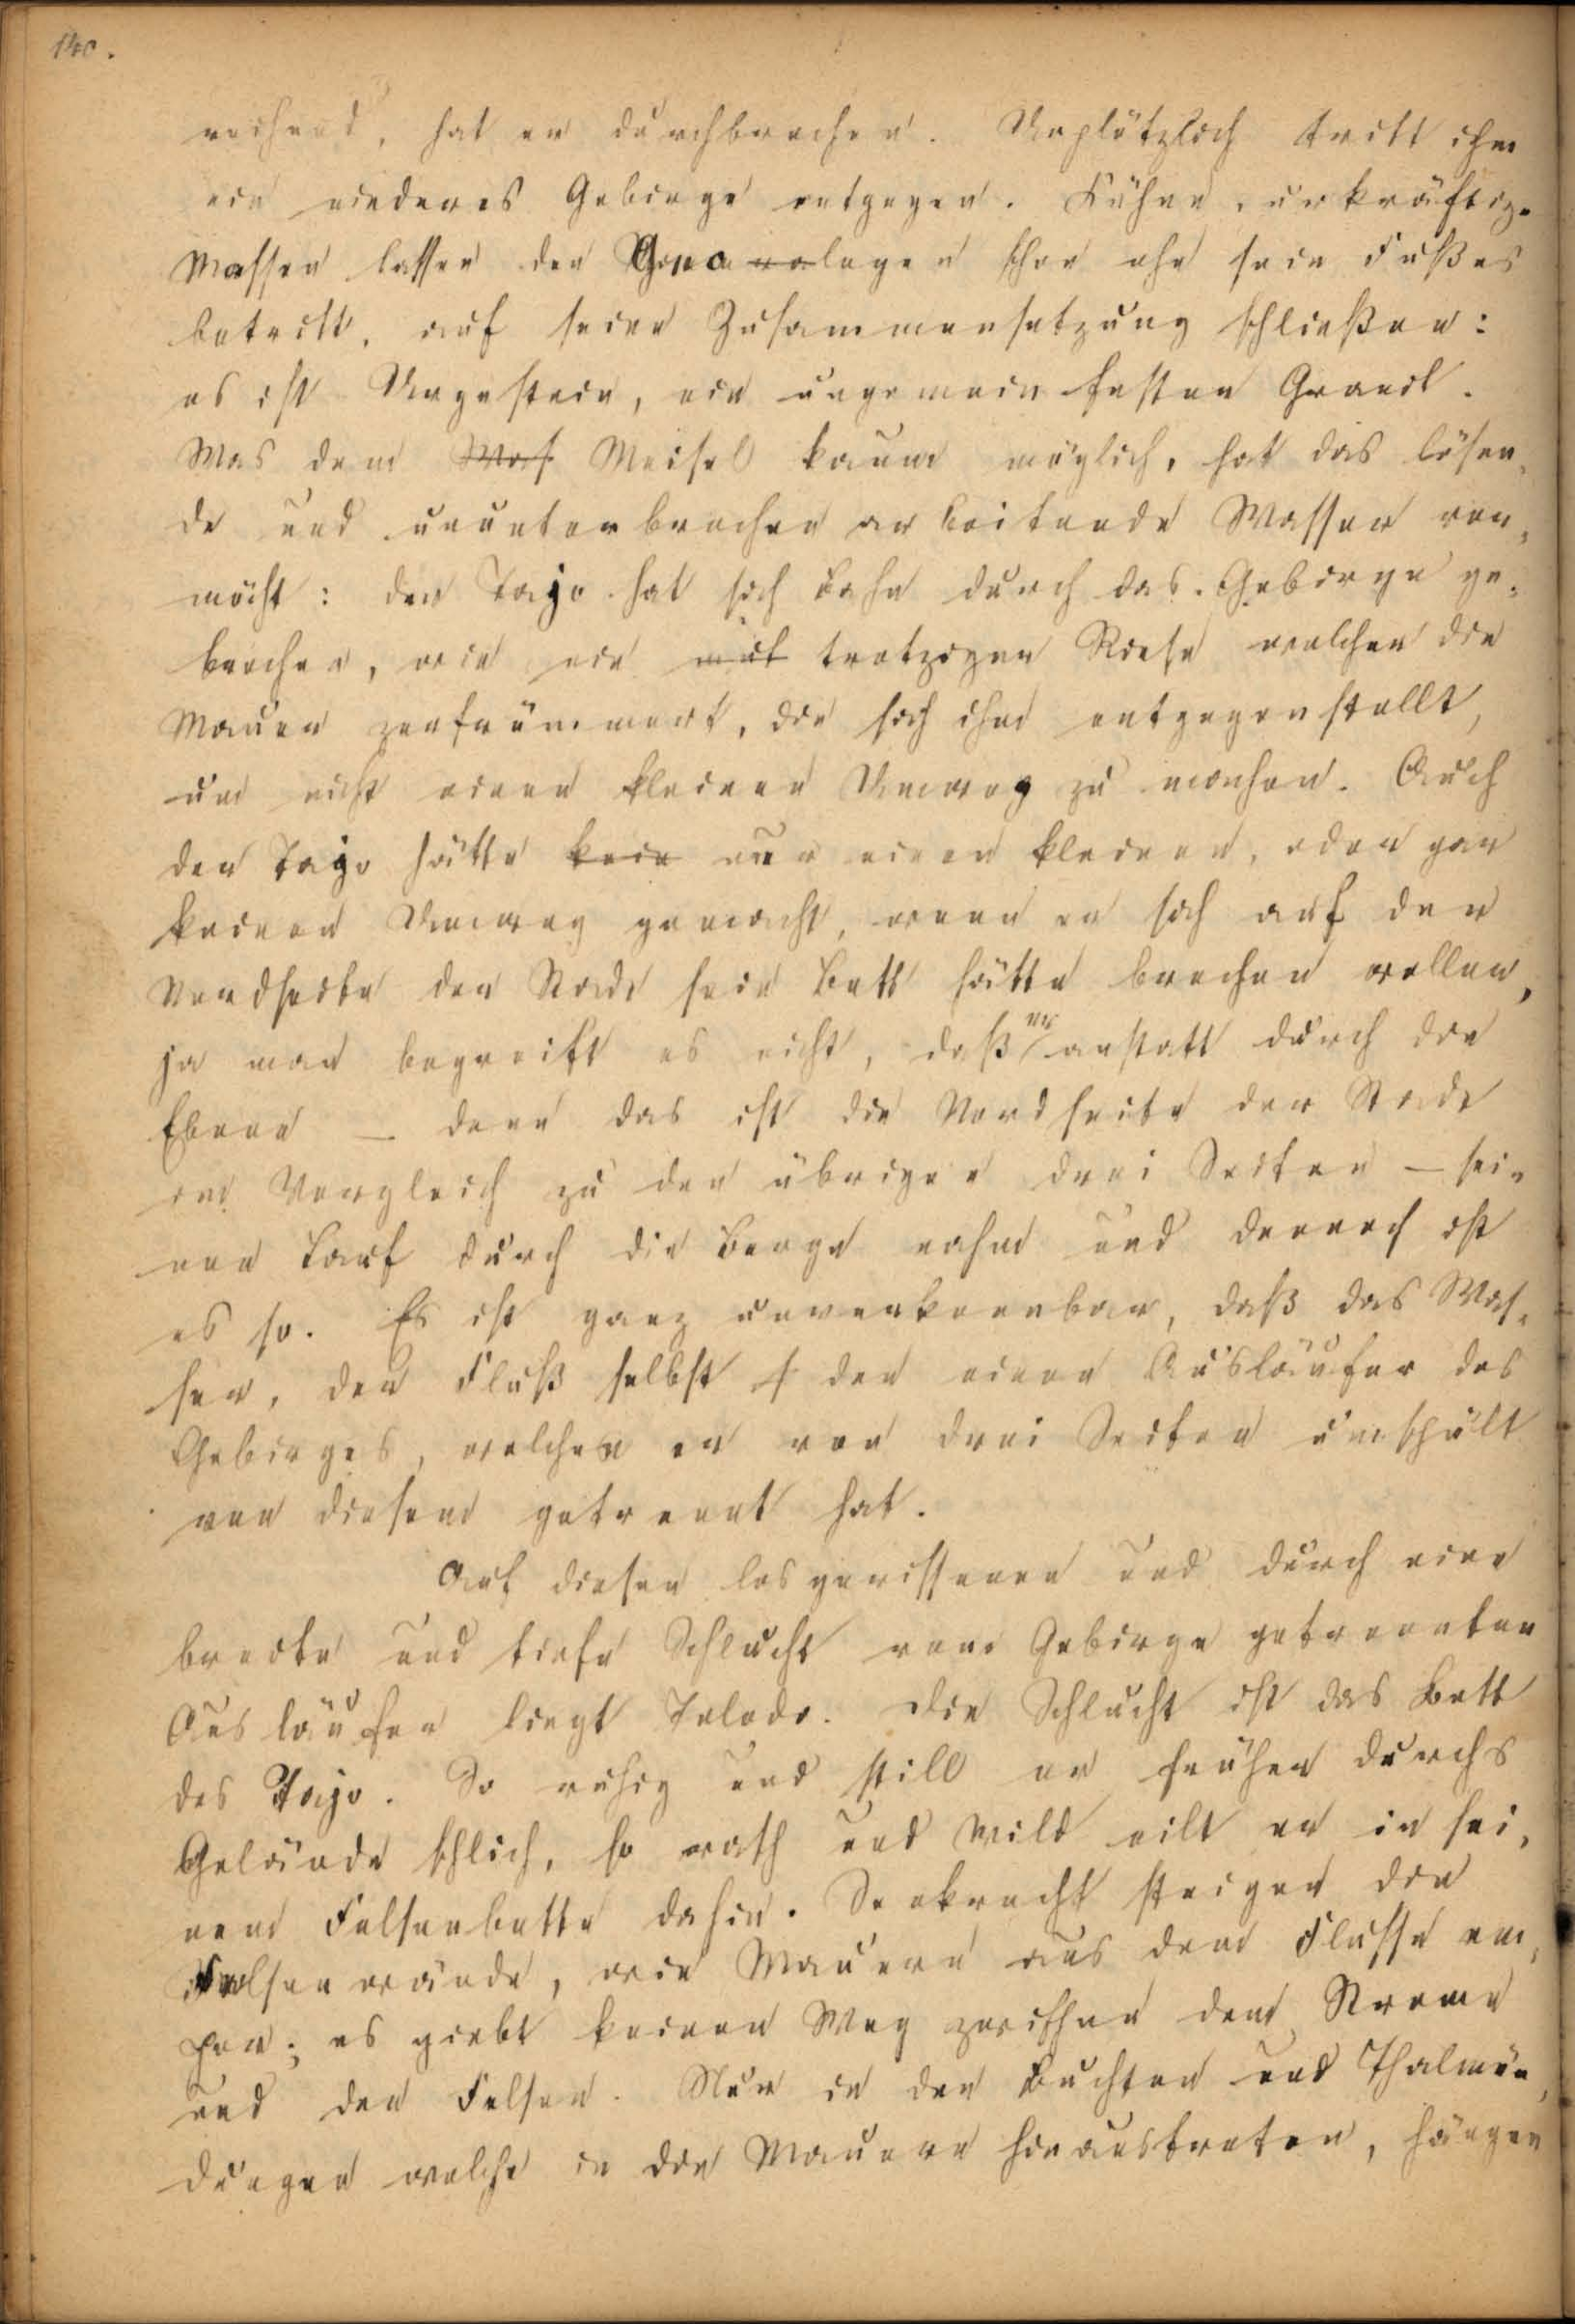 140.
reichend, hat er durchbrochen. Urplötzlich tritt ihm
ein niederes Gebirge entgegen. Kühne, urkräftige
Massen lassen den Geologen schon ehe sein Fuß es
betritt, auf seine Zusammensetzung schließen:
es ist Urgestein, ein ungemein fester Granit.
Was dem Meisel kaum möglich, hat das lösen-
de und ununterbrochen arbeitende Wasser ver-
mocht: der Tajo hat sich Bahn durch das Gebirge ge-
brochen, wie ein trotziger Riese welcher die
Mauer zertrümmert, die sich ihm entgegenstellt,
um nicht einen kleinen Umweg zu machen. Auch
der Tajo hätte nur einen kleinen, oder gar
keinen Umweg gemacht, wenn er sich auf der
Nordseite der Stadt sein Bett hätte brechen wollen,
ja man begreift es nicht, daß er anstatt durch die
Ebene – denn das ist die Nordseite der Stadt
im Vergleich zu den übrigen drei Seiten – sei-
nen Lauf durch die Berge nahm und dennoch ist
es so. Es ist ganz unverkennbar, daß das Was-
ser, der Fluß selbst den einen Ausläufer des
Gebirges, welchen er von drei Seiten umspült
von diesem getrennt hat.
Auf diesen losgerissenen und durch eine
breite und tiefe Schlucht vom Gebirge getrennten
Ausläufer liegt Toledo. Die Schlucht ist das Bett
des Tajo. So ruhig und still er früher durchs
Gelände schlich, so rasch und wild eilt er in sei-
nem Felsenbette dahin. Senkrecht steigen die
Felsenwände, wie Mauern aus dem Flusse em-
por; es giebt keinen Weg zwischen dem Strome
und den Felsen. Nur in den Buchten und Thalmün-
dungen welche in die Mauern hinaustreten, hängen